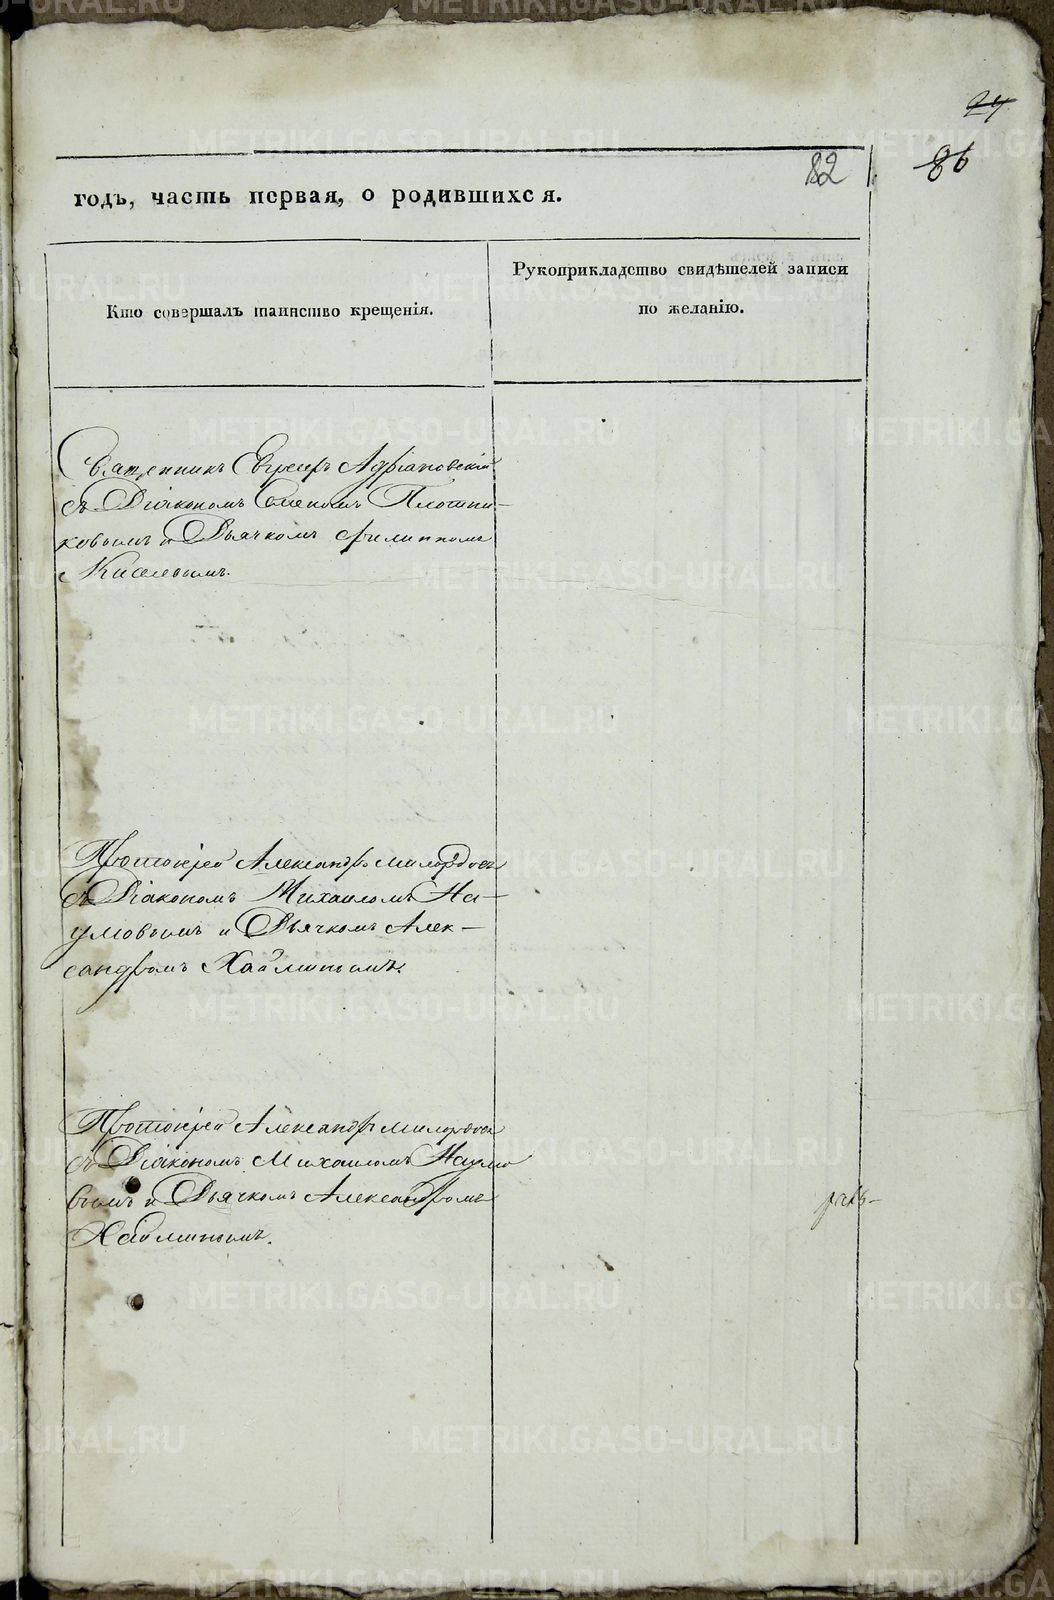 27
82
86
годъ, часть первая, о родившихся.
Кто совершалъ таинство крещенія.
Рукоприкладство свидѣтелей записи
по желанію.
Священникъ Адріановскій
съ Діакономъ Плотни-
ковымъ и Дьячкомъ Филиппомъ
Киселевымъ.
Протоіерей Александръ Милордовъ
съ Діакономъ Михаиломъ На-
умовымъ и Дьячкомъ Алек-
сандромъ Хайминымъ.
Протоіерей Александръ Милордовъ
съ Діакономъ Михаиломъ Наумо
вымъ и Дьячкомъ Александромъ
Хайминымъ.
METRIKI.GASO-URAL.RU